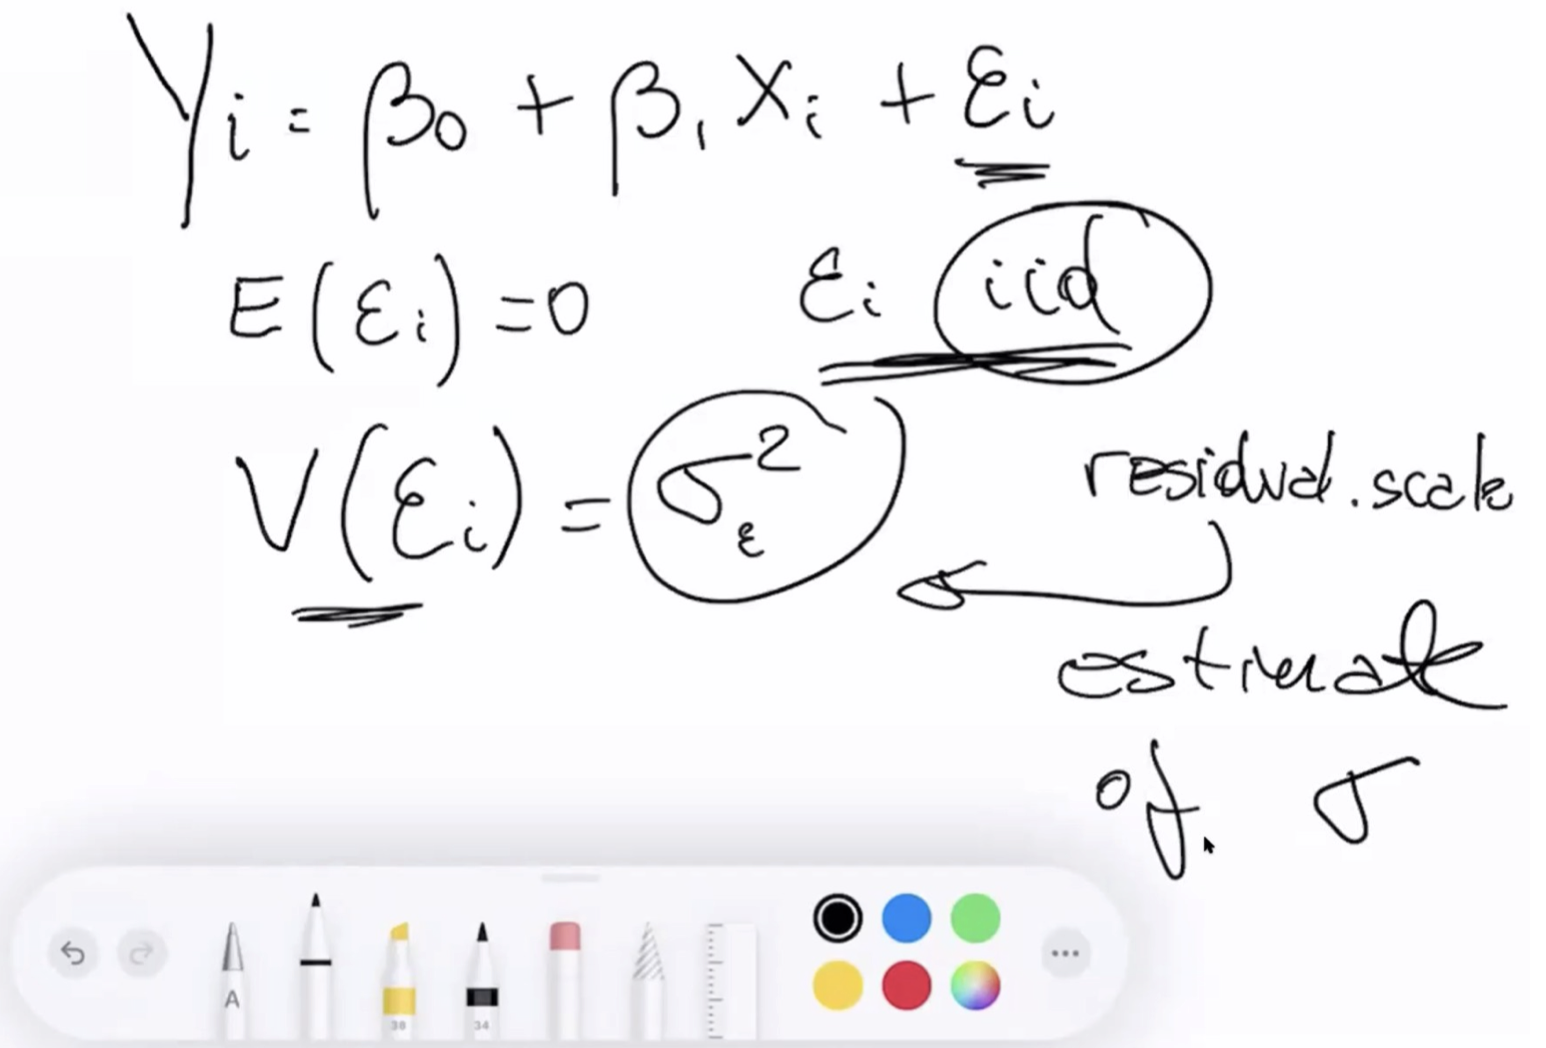 Yi = β0 + β1 Xi + εi
E(εi) = 0
εi iid
V(εi) = σε²
residual.scale
estimate
of σ
A
38
34